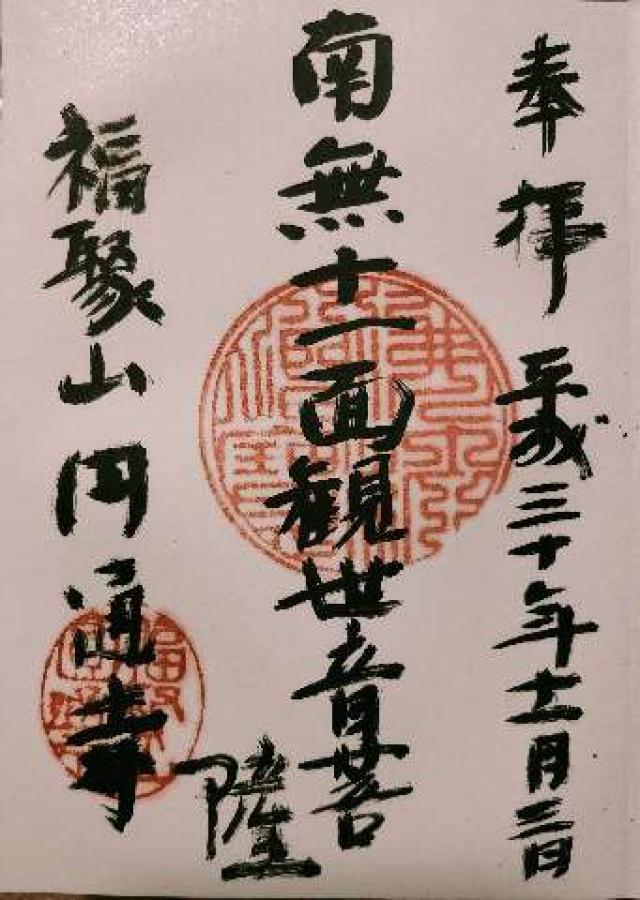 奉拝 平成三十年十一月三日
南無十一面観世音菩薩
福聚山 円通寺